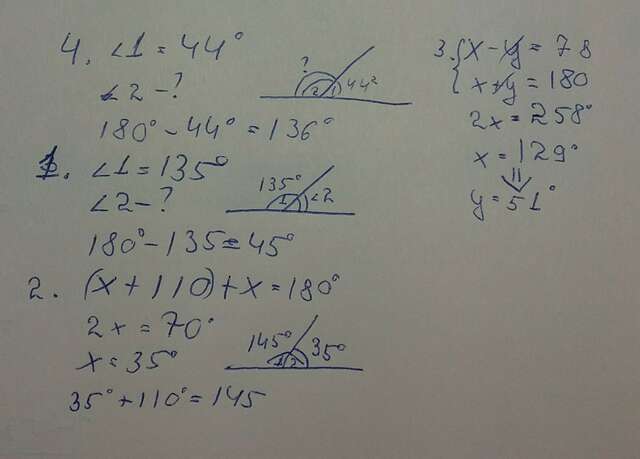 4. ∠1 = 44°
∠2 - ?
? 2 1 44°
180° - 44° = 136°
1. ∠1 = 135°
∠2 - ?
135° 1 ∠2
180° - 135 = 45°
2. (x + 110) + x = 180°
2x = 70°
x = 35°
145° 1 2 35°
35° + 110° = 145
3. { x - y = 78
x + y = 180
2x = 258°
x = 129°
⇓
y = 51°